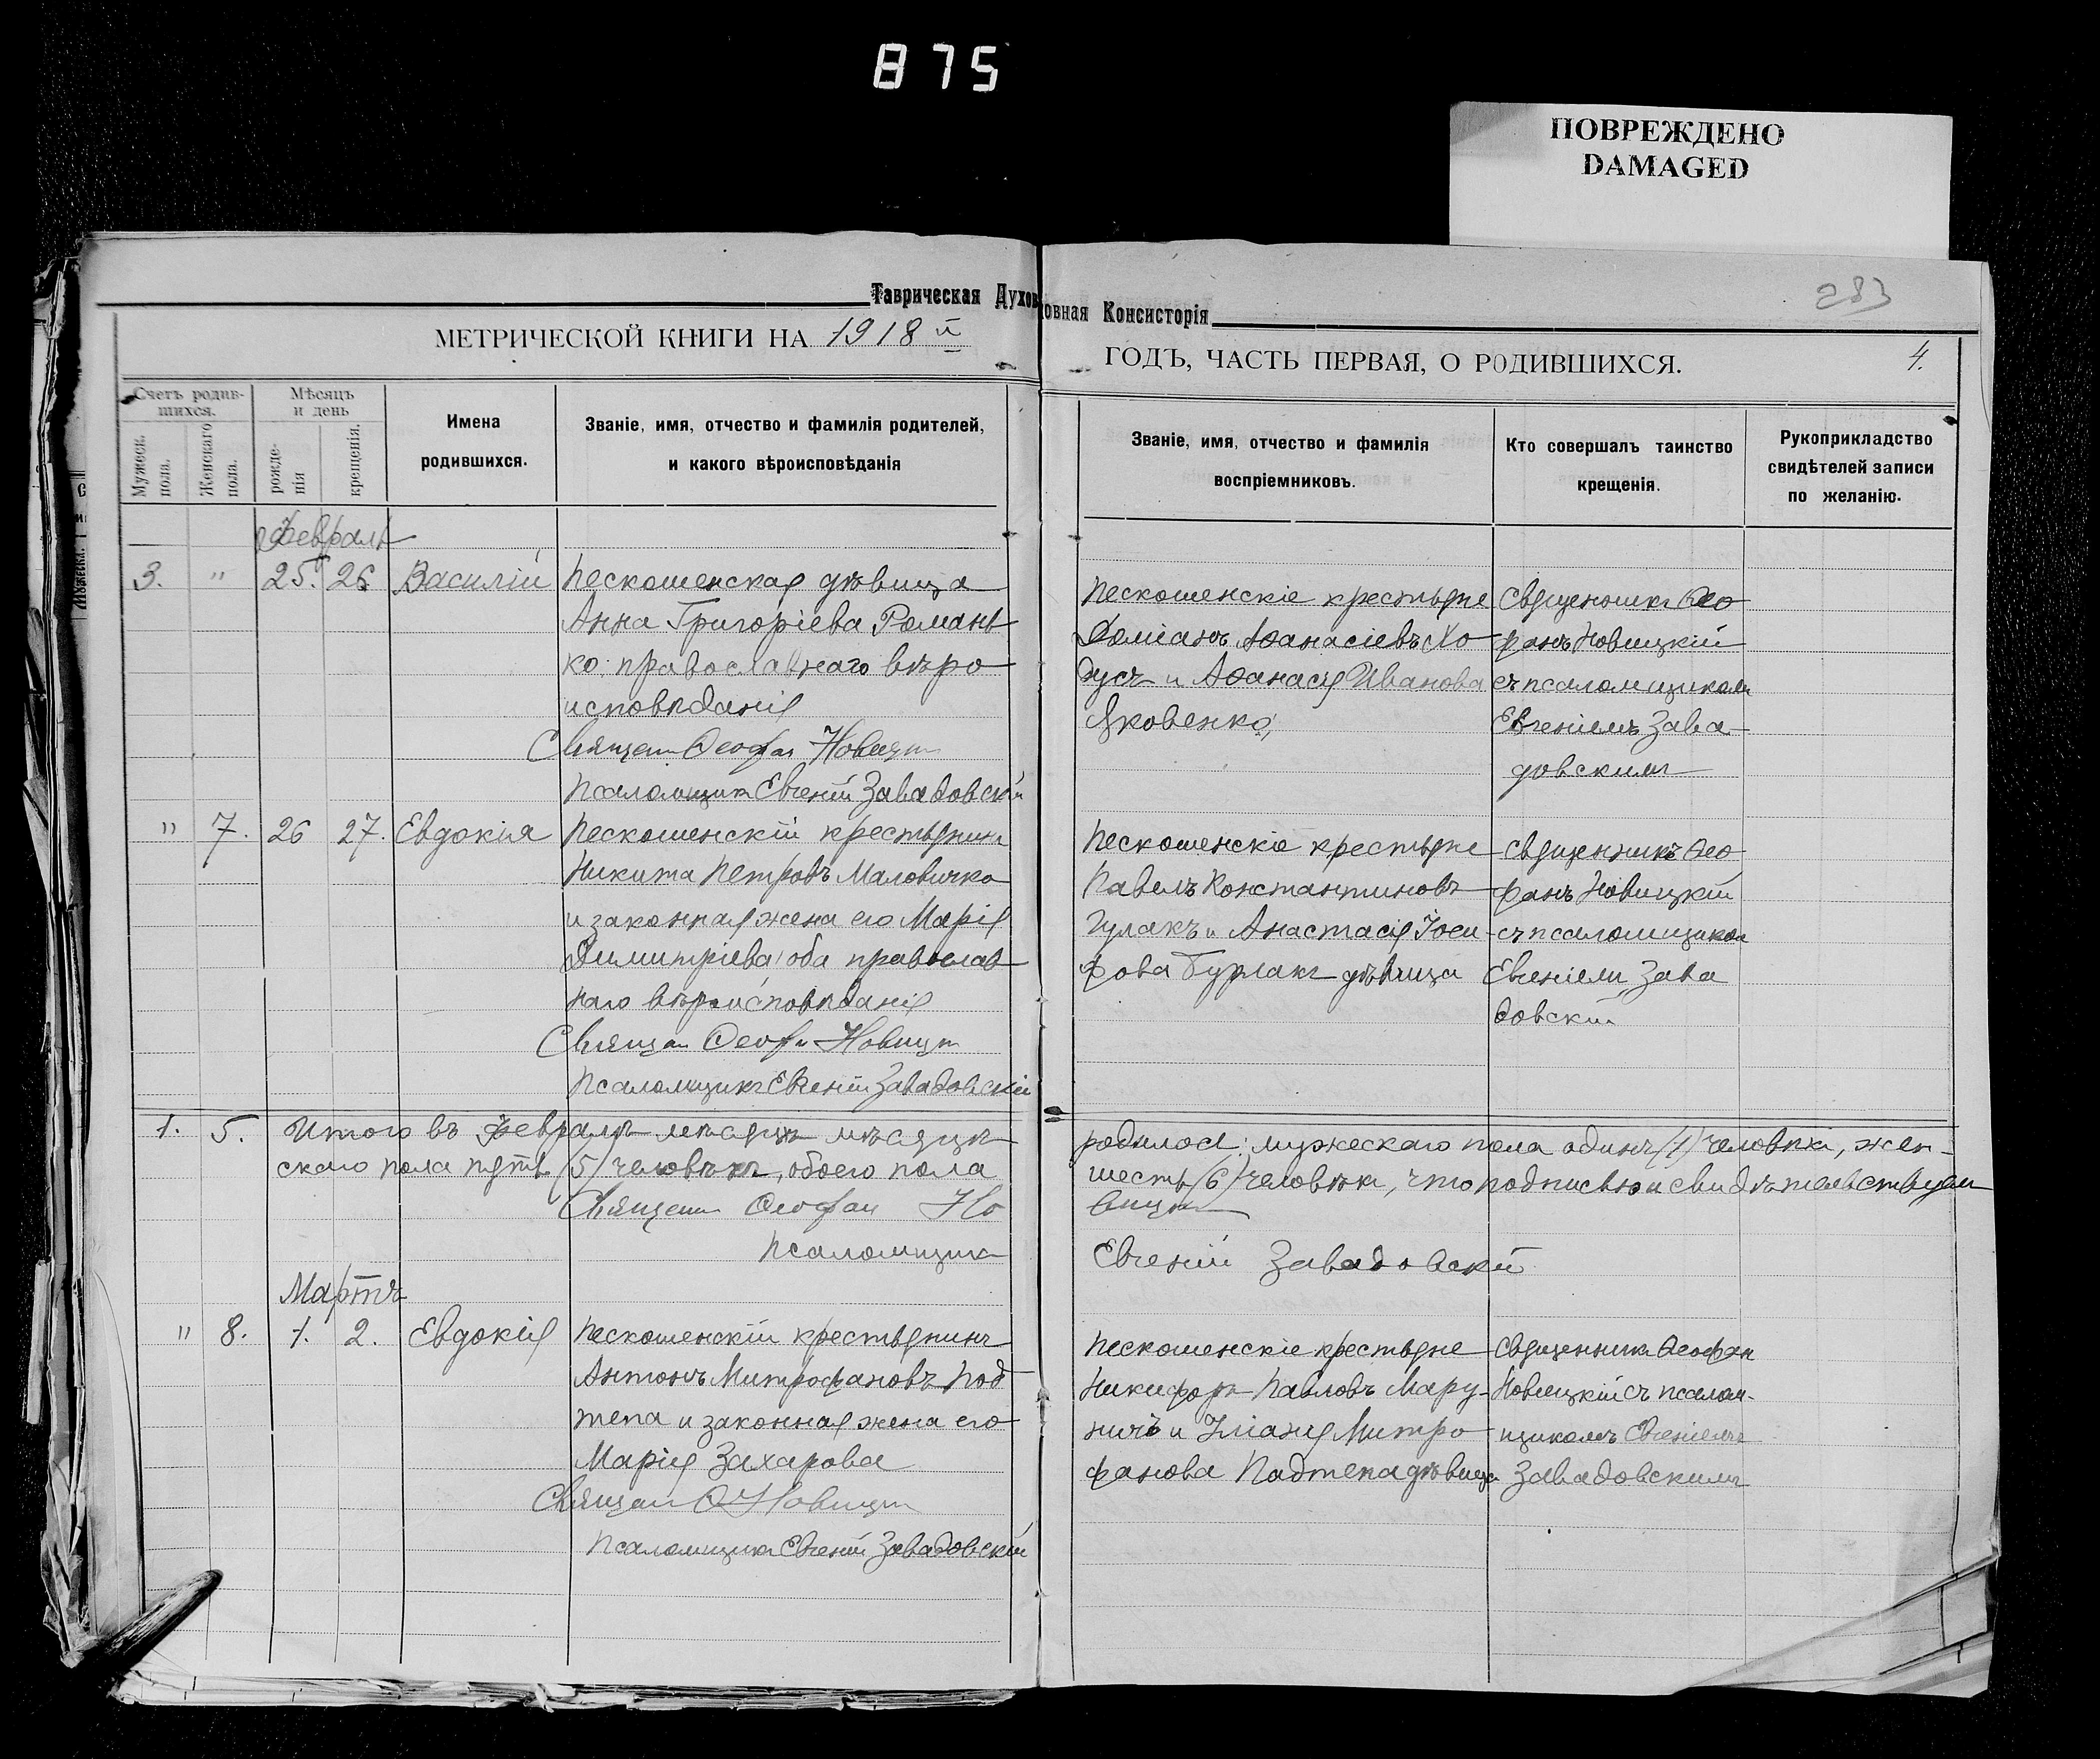 875
ПОВРЕЖДЕНО
DAMAGED
283
Таврическая Духовная Консисторія
МЕТРИЧЕСКОЙ КНИГИ НА 1918 й
ГОДЪ, ЧАСТЬ ПЕРВАЯ, О РОДИВШИХСЯ.
4.
Счетъ родив-
шихся.
Мужеск. пола.
Женскаго пола.
Мѣсяцъ
и день
рожде-
нія
крещенія.
Имена
родившихся.
Званіе, имя, отчество и фамилія родителей,
и какого вѣроисповѣданія
Званіе, имя, отчество и фамилія
воспріемниковъ.
Кто совершалъ таинство
крещенія.
Рукоприкладство
свидѣтелей записи
по желанію.
Февраль
3. " 25. 26 Василій
Пескошенская дѣвица
Анна Григоріева Романь
ко: православнаго вѣро
исповѣданія
Священ Ѳеофан Новицк
Псаломщикъ Евгеній Завадовскій
Пескошенскіе крестьяне
Доміанъ Аѳанасіевъ Хо
дусъ и Аѳанасія Иванова
Яковенко,
Священникъ Ѳео
фанъ Новицкій
съ псаломщикомъ
Евгеніемъ Зава
довскимъ
" 7. 26 27. Евдокія
Пескошенскій крестьянинъ
Никита Петровъ Маловичко
и законная жена его Марія
Димитріева оба православ
наго вѣроисповѣданія
Священ Ѳеофн Новицк
Псаломщикъ Евгеній Завадовскій
Пескошенскіе крестьяне
Павелъ Константиновъ
Гулакъ и Анастасія Іоси
фова Бурлакъ дѣвица
Священникъ Ѳео
фанъ Новицкій
съ псаломщиком
Евгеніемъ Зава
довским
1. 5. Итого въ Февралѣ мѣсяцѣ мѣсяцѣ родилося: мужескаго пола одинъ (1) человѣкъ, жен-
скаго пола пять (5) человѣкъ, обоего пола шесть (6) человѣкъ, что подписью и свидѣтельствуем
Священ Ѳеофан Новицк
Псаломщик Евгеній Завадовскій
Мартъ
" 8. 1. 2. Евдокія
Пескошенскій крестьянинъ
Антонъ Митрофановъ Под
тепа и законная жена его
Марія Захарова
Священ Ѳ Новицк
Псаломщикъ Евгеній Завадовскій
Пескошенскіе крестьяне
Никифоръ Павловъ Мару-
ничъ и Уліанія Митро
фанова Подтепа дѣвица
Священникъ Ѳеофан
Новицкій съ псалом-
щикомъ Евгеніемъ
Завадовскимъ